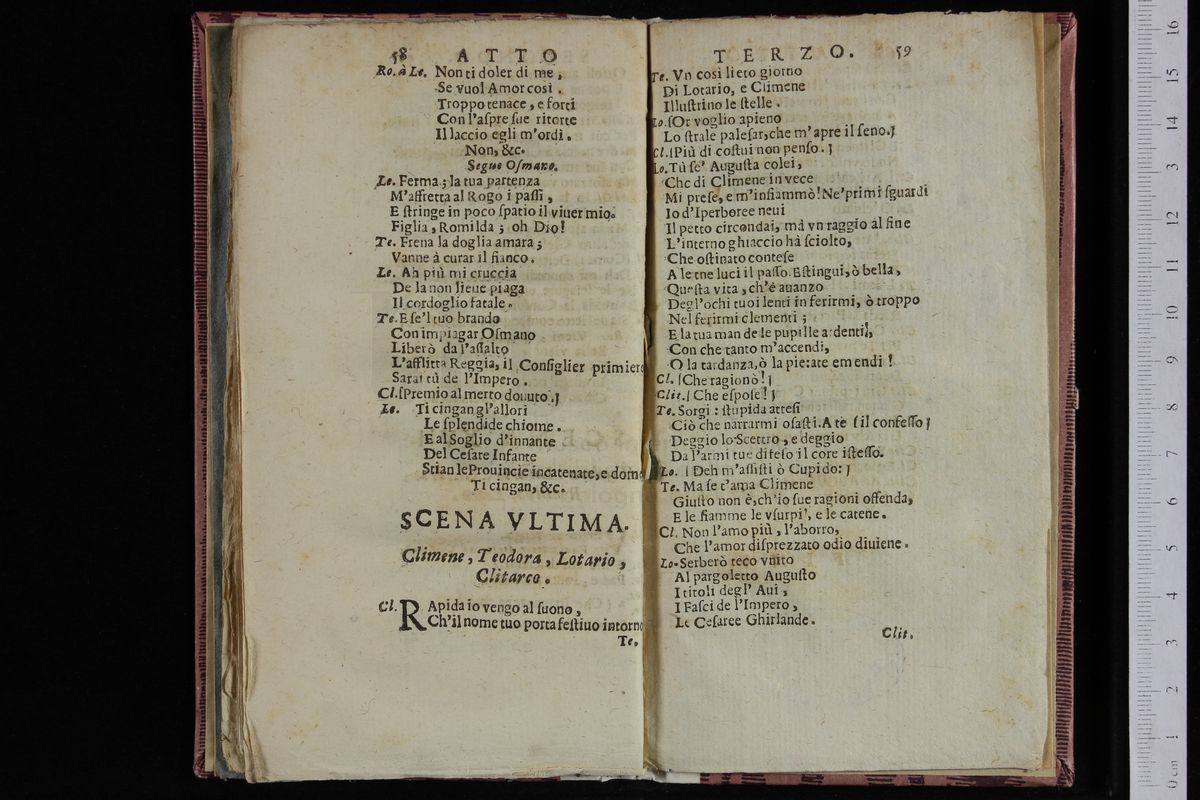 58 ATTO
Ro. à Le. Non ti doler di me,
Se vuol Amor così.
Troppo tenace, e forti
Con l'aſpre ſue ritorte
Il laccio egli m'ordì.
Non, &c.
Segue Oſmano.
Le. Ferma; la tua partenza
M'affretta al Rogo i paſſi,
E ſtringe in poco ſpatio il viuer mio.
Figlia, Romilda; oh Dio!
Te. Frena la doglia amara;
Vanne à curar il fianco.
Le. Ah più mi cruccia
De la non lieue piaga
Il cordoglio fatale.
Te. E ſe'l tuo brando
Con impiagar Oſmano
Liberò da l'aſſalto
L'afflitta Reggia, il Conſiglier primiero
Sarai tù de l'Impero.
Cl. ſPremio al merto douuto.ȷ
Le. Ti cingan gl'allori
Le ſplendide chiome.
E al Soglio d'innante
Del Ceſare Infante
Stian le Prouincie incatenate, e dome
Ti cingan, &c.
SCENA VLTIMA.
Climene, Teodora, Lotario,
Clitarco.
Cl. RApida io vengo al ſuono,
Ch'il nome tuo porta feſtiuo intorno
Te.
TERZO. 59
Te. Vn così lieto giorno
Di Lotario, e Climene
Illuſtrino le ſtelle.
Lo. ſOr voglio apieno
Lo ſtrale paleſar, che m'apre il ſeno.ȷ
Cl. ſPiù di coſtui non penſo.ȷ
Lo. Tù ſe' Auguſta colei,
Che di Climene in vece
Mi preſe, e m'infiammò! Ne' primi ſguardi
Io d'Iperboree neui
Il petto circondai, mà vn raggio al fine
L'interno ghiaccio hà ſciolto,
Che oſtinato conteſe
A le tue luci il paſſo. Eſtingui, ò bella,
Queſta vita, ch'è auanzo
Degl'ochi tuoi lenti in ferirmi, ò troppo
Nel ferirmi clementi;
E la tua man de le pupille ardenti,
Con che tanto m'accendi,
O la tardanza, ò la pietate emendi!
Cl. ſChe ragionò!ȷ
Clit. ſChe eſpoſe!ȷ
Te. Sorgi: ſtupida atteſi
Ciò che narrarmi oſaſti. A te ſil confeſſoȷ
Deggio lo Scettro, e deggio
Da l'armi tue difeſo il core iſteſſo.
Lo. ſDeh m'aſſiſti ò Cupido:ȷ
Te. Ma ſe t'ama Climene
Giuſto non è, ch'io ſue ragioni offenda,
E le fiamme le vſurpi, e le catene.
Cl. Non l'amo più, l'aborro,
Che l'amor diſprezzato odio diuiene.
Lo. Serberò teco vnito
Al pargoletto Auguſto
I titoli degl' Aui,
I Faſci de l'Impero,
Le Ceſaree Ghirlande.
Clit.
0 cm 1 2 3 4 5 6 7 8 9 10 11 12 13 14 15 16